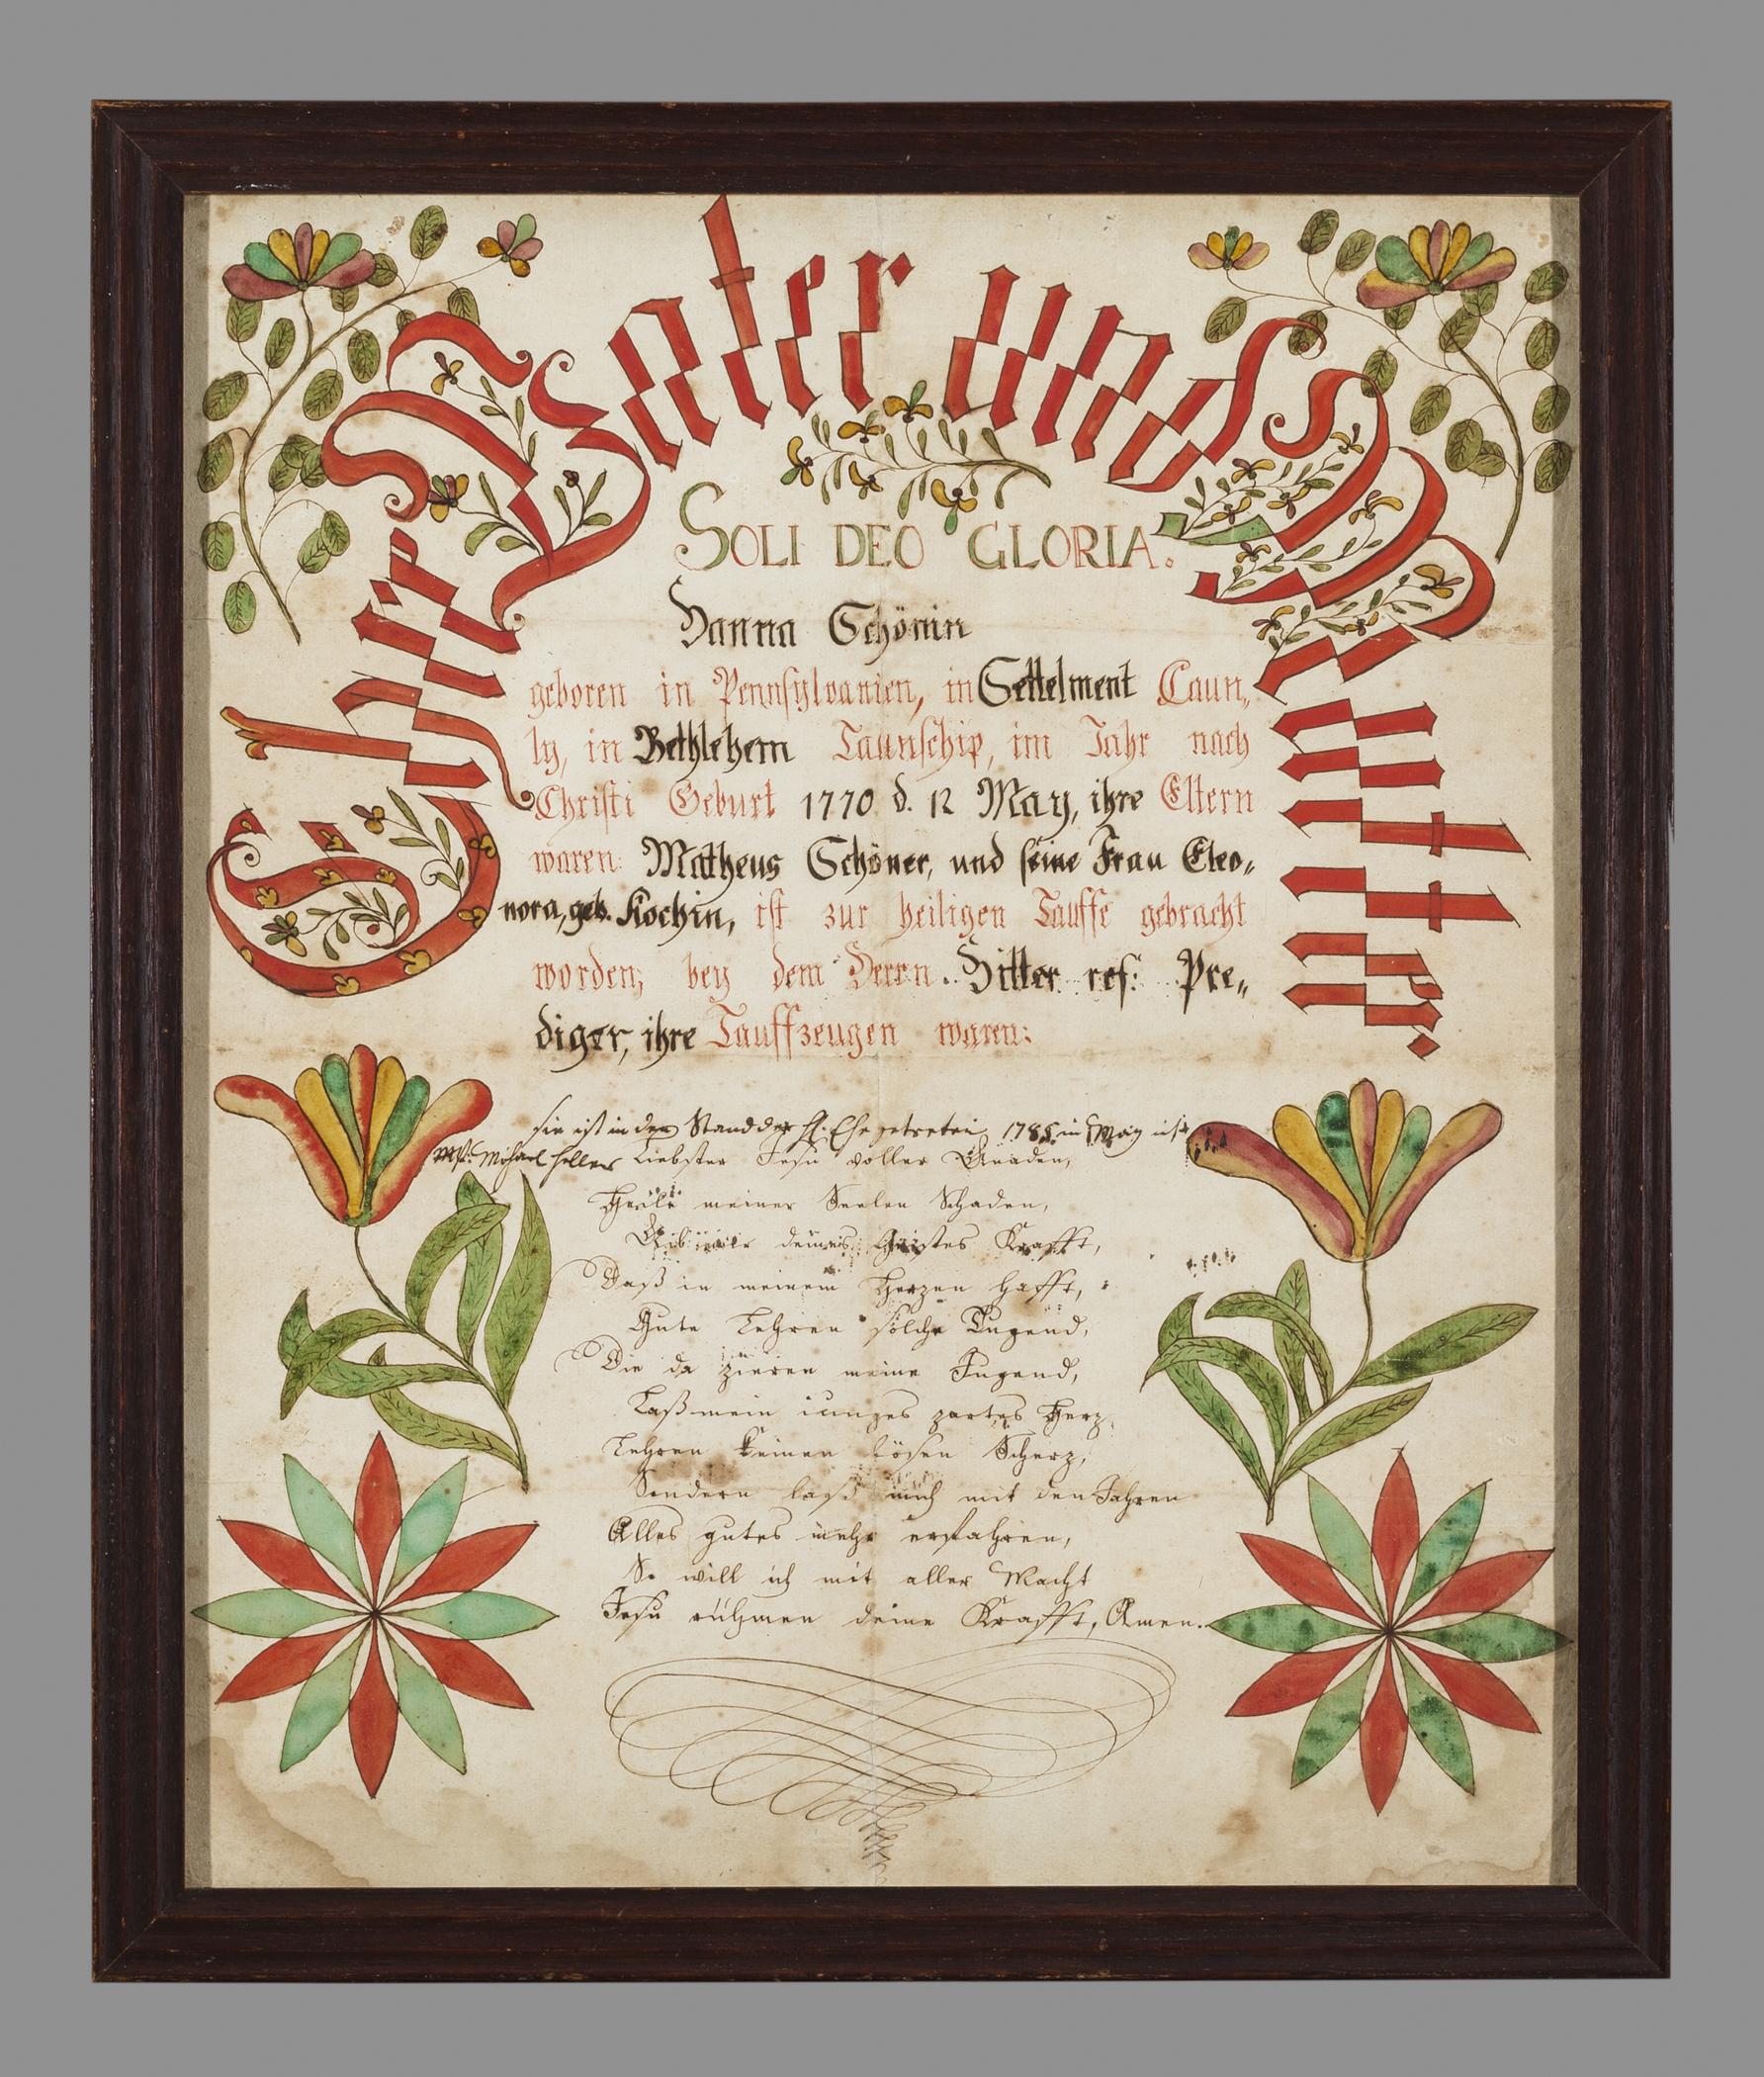 Ehre Vater und Mutter.
SOLI DEO GLORIA.
Hanna Schönin
geboren in Pennsylvanien, in Settelment Caun„
ty, in Bethlehem Taunschip, im Jahr nach
Christi Geburt 1770 d. 12 May, ihre Eltern
waren: Matheus Schöner, und seine Frau Eleo„
nora, geb. Kochin, ist zur heiligen Tauffe gebracht
worden; bey dem Herrn Hitter ref: Pre„
diger, ihre Tauffzeugen waren:
sie ist in den Stand der H. Ehe getreten 1785 in May
Mst: Michael Heller
Liebster Jesu voller Gnaden,
Heile meiner Seelen Schaden,
Gib mir deines Geistes Krafft,
Daß in meinem Herzen hafft,
Gute Lehren solche Tugend,
Die da zieren meine Jugend,
Laß mein iunges zartes Herz,
Lehren keinen bösen Scherz,
Sondern laß mich mit den Jahren
Alles gutes mehr erfahren,
So will ich mit aller Macht
Jesu rühmen deine Krafft, Amen.